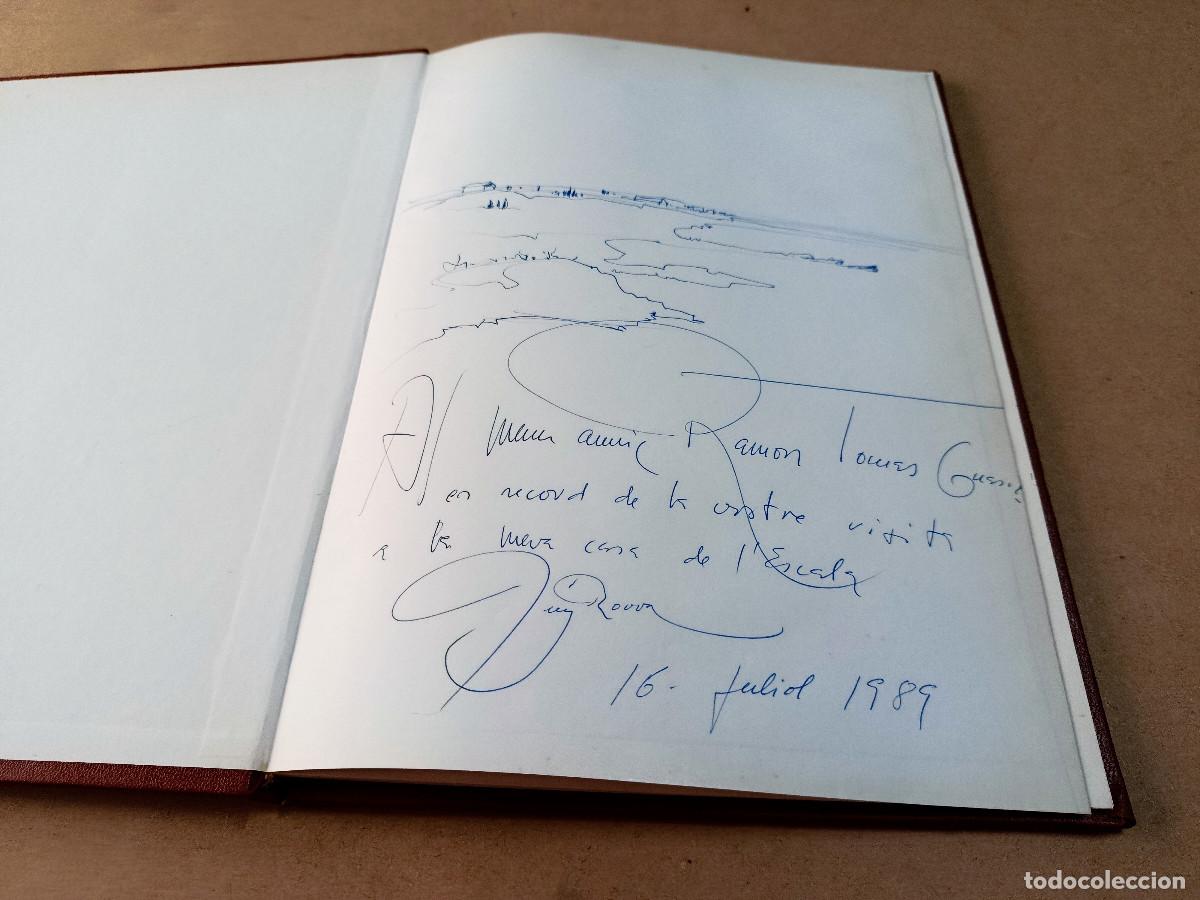 Al meu amic Ramon Tomas
en record de la vostre visita
a la meva casa de l'Escala
Puig Rovira
16. Juliol 1989
todocoleccion